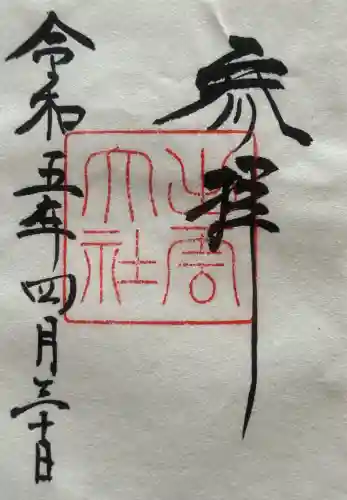 参拝
出雲大社
令和五年四月三十日